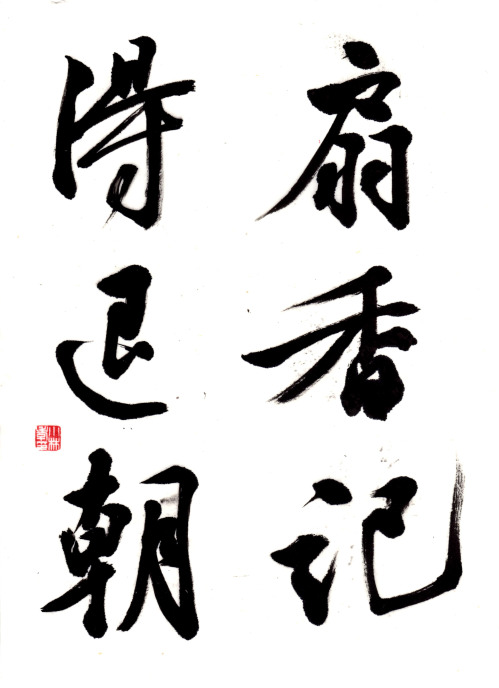 扇香記
得退朝